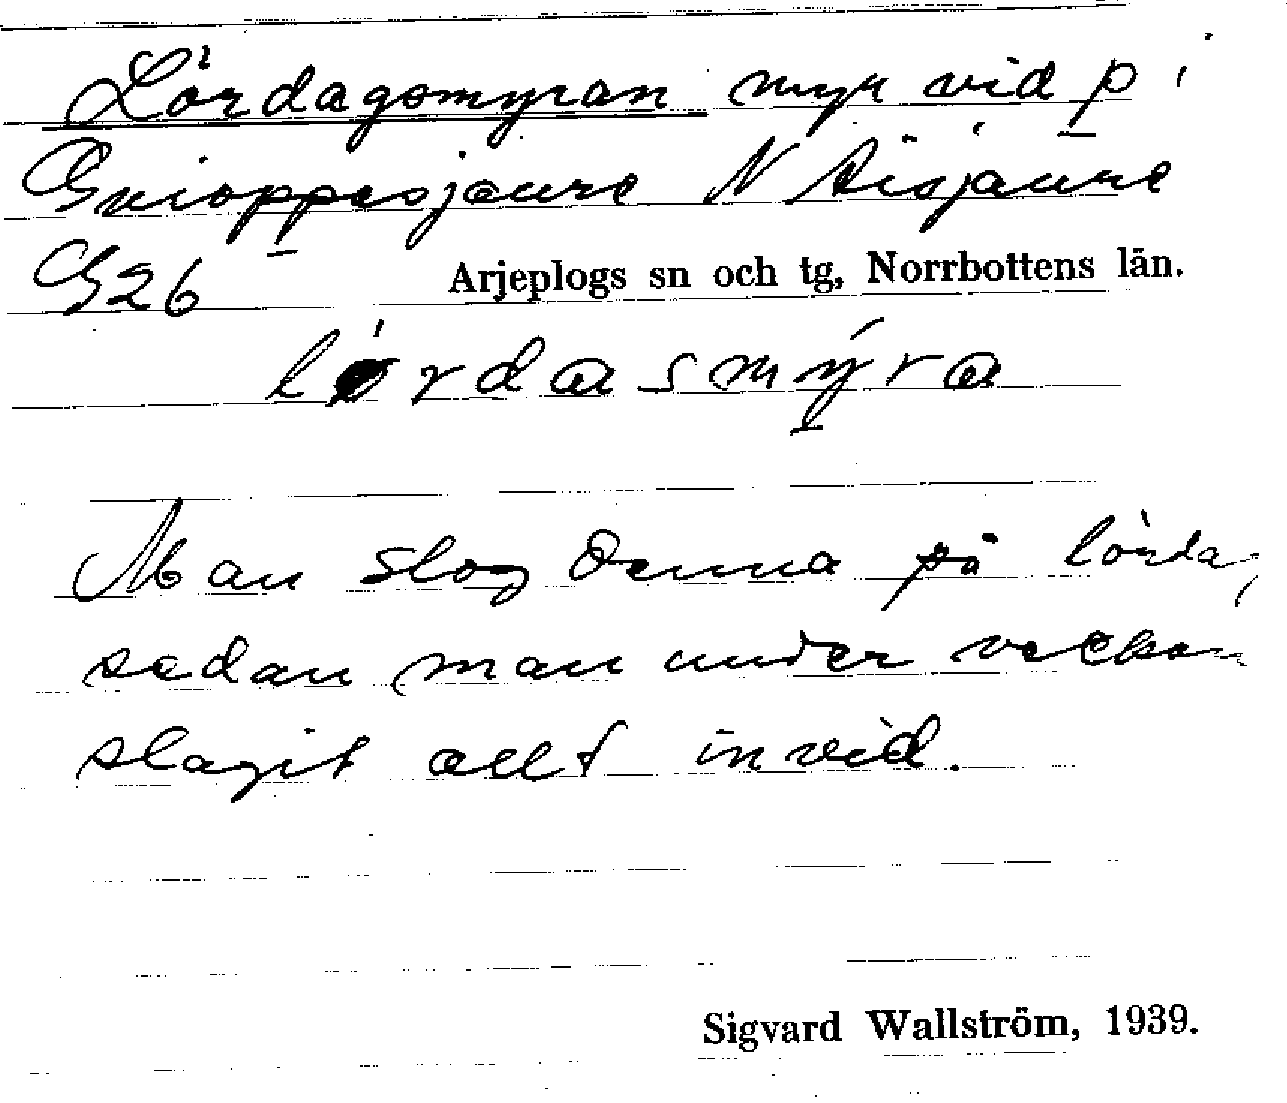 Lördagsmyran myr vid p
Gvioppesjaure N Aisjaure
G26 Arjeplogs sn och tg, Norrbottens län.
lørdasmýra
Man slog denna på lörda,
sedan man under veckan
slagit allt invid.
Sigvard Wallström, 1939.